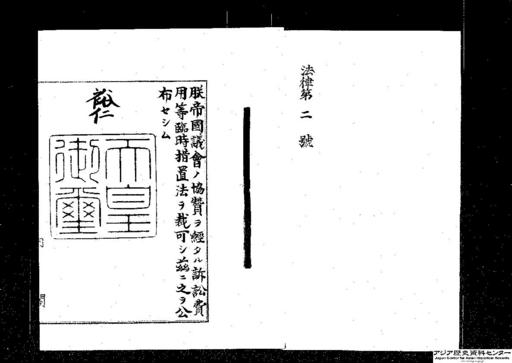 法律第二號
朕帝國議會ノ協贊ヲ經タル訴訟費
用等臨時措置法ヲ裁可シ茲ニ之ヲ公
布セシム
裕仁
天皇
御璽
内
閣
アジア歴史資料センター
Japan Center for Asian Historical Records